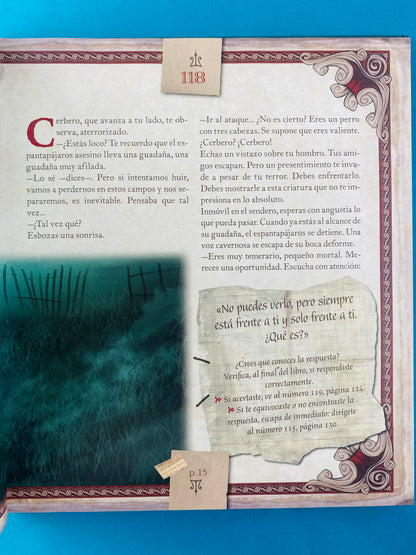 118
Cerbero, que avanza a tu lado, te ob-
serva, aterrorizado.
—¿Estás loco? Te recuerdo que el es-
pantapájaros asesino lleva una guadaña, una
guadaña muy afilada.
—Lo sé —dices—. Pero si intentamos huir,
vamos a perdernos en estos campos y nos se-
pararemos, es inevitable. Pensaba que tal
vez...
—¿Tal vez qué?
Esbozas una sonrisa.
—Ir al ataque... ¿No es cierto? Eres un perro
con tres cabezas. Se supone que eres valiente.
¿Cerbero? ¡Cerbero!
Echas un vistazo sobre tu hombro. Tus ami-
gos escapan. Pero un presentimiento te inva-
de a pesar de tu terror. Debes enfrentarlo.
Debes mostrarle a esta criatura que no te im-
presiona en lo absoluto.
Inmóvil en el sendero, esperas con angustia lo
que pueda pasar. Cuando ya estás al alcance de
su guadaña, el espantapájaros se detiene. Una
voz cavernosa se escapa de su boca deforme.
—Eres muy temerario, pequeño mortal. Me-
reces una oportunidad. Escucha con atención:
«No puedes verlo, pero siempre
está frente a ti y solo frente a ti.
¿Qué es?»
¿Crees que conoces la respuesta?
Verifica, al final del libro, si respondiste
correctamente.
Si acertaste, ve al número 119, página 124.
Si te equivocaste o no encontraste la
respuesta, escapa de inmediato: dirígete
al número 115, página 130.
p. 15